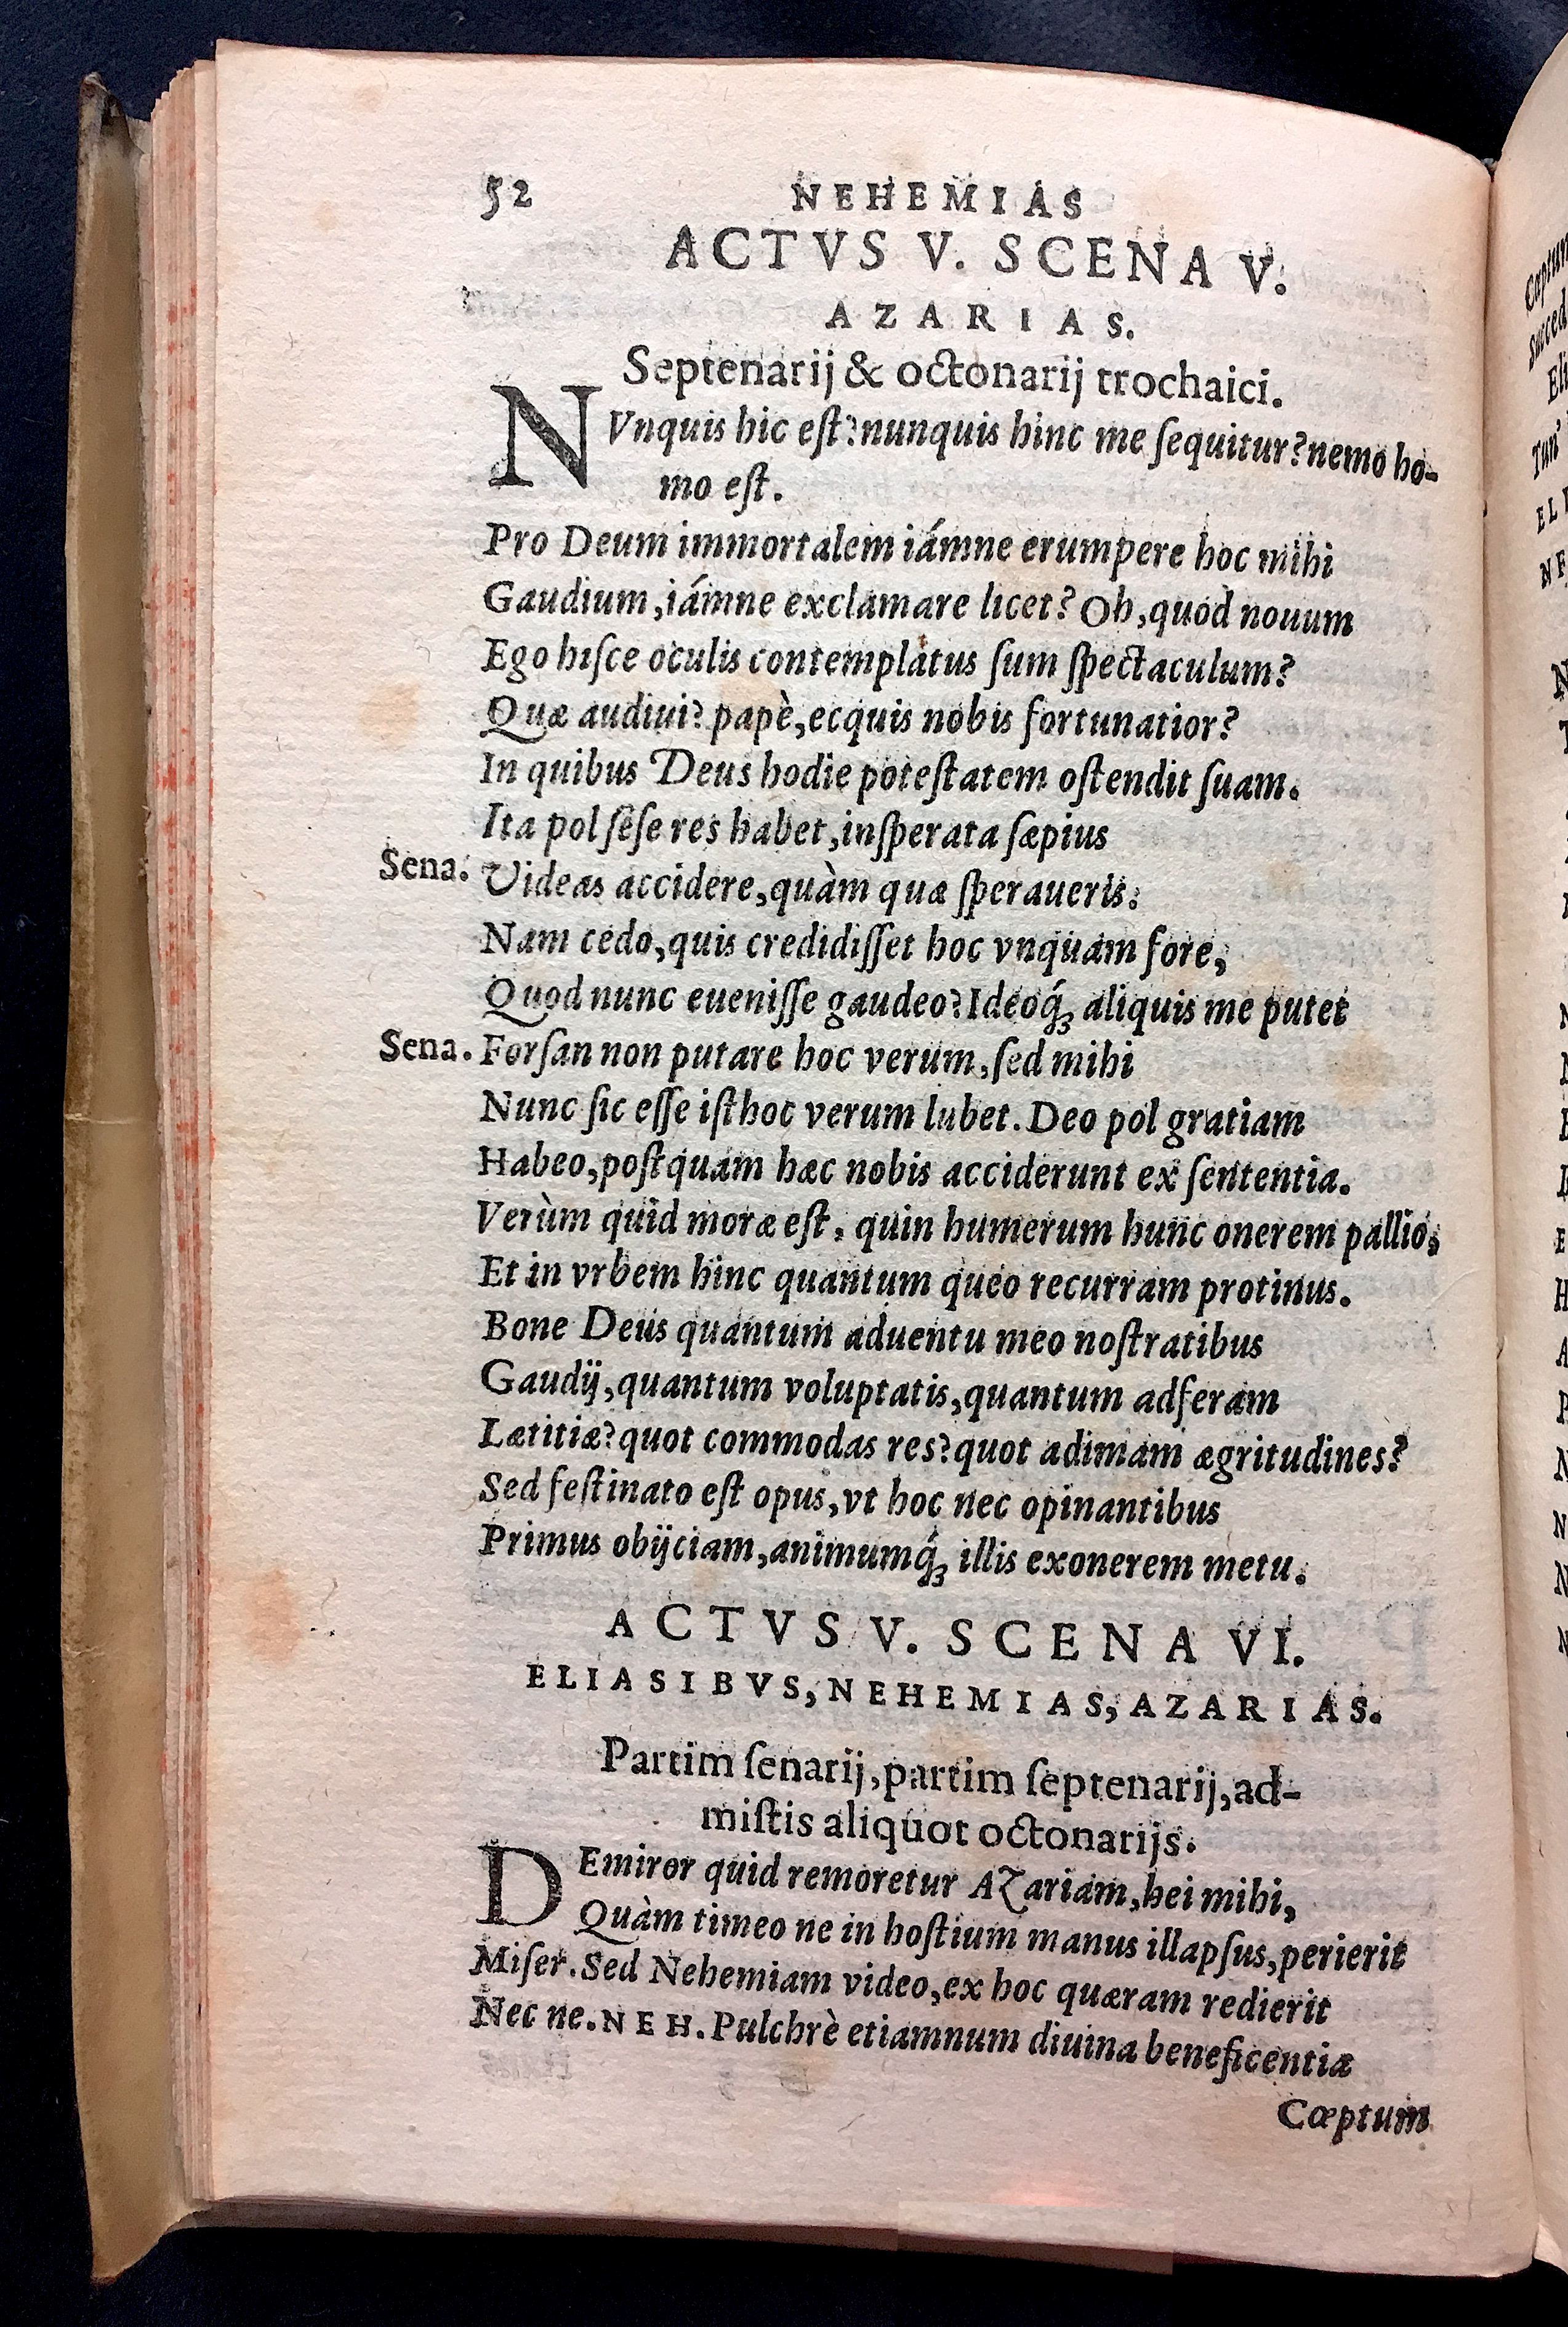 52 NEHEMIAS
ACTVS V. SCENA V.
AZARIAS.
Septenarij & octonarij trochaici.
NVnquis hic eſt? nunquis hinc me ſequitur? nemo ho-
mo eſt.
Pro Deum immortalem iámne erumpere hoc mihi
Gaudium, iámne exclamare licet? Oh, quòd nouum
Ego hiſce oculis contemplatus ſum ſpectaculum?
Quæ audiui? papè, ecquis nobis fortunatior?
In quibus Deus hodie poteſtatem oſtendit ſuam.
Ita pol ſeſe res habet, inſperata ſæpius
Sena. Videas accidere, quàm quæ ſperaueris:
Nam cedo, quis credidiſſet hoc vnquam fore,
Quod nunc eueniſſe gaudeo? Ideoq́; aliquis me putet
Sena. Forſan non putare hoc verum, ſed mihi
Nunc ſic eſſe iſthoc verum lubet. Deo pol gratiam
Habeo, poſtquam hæc nobis acciderunt ex ſententia.
Verùm quid moræ eſt, quin humerum hunc onerem pallio,
Et in vrbem hinc quantum queo recurram protinus.
Bone Deus quantum aduentu meo noſtratibus
Gaudij, quantum voluptatis, quantum adferam
Lætitiæ? quot commodas res? quot adimam ægritudines?
Sed feſtinato eſt opus, vt hoc nec opinantibus
Primus obijciam, animumq́; illis exonerem metu.
ACTVS V. SCENA VI.
ELIASIBVS, NEHEMIAS, AZARIAS.
Partim ſenarij, partim ſeptenarij, ad-
miſtis aliquot octonarijs.
DEmiror quid remoretur Azariam, hei mihi,
Quàm timeo ne in hoſtium manus illapſus, perierit
Miſer. Sed Nehemiam video, ex hoc quæram redierit
Nec ne. NEH. Pulchrè etiamnum diuina beneficentia
Cœptum